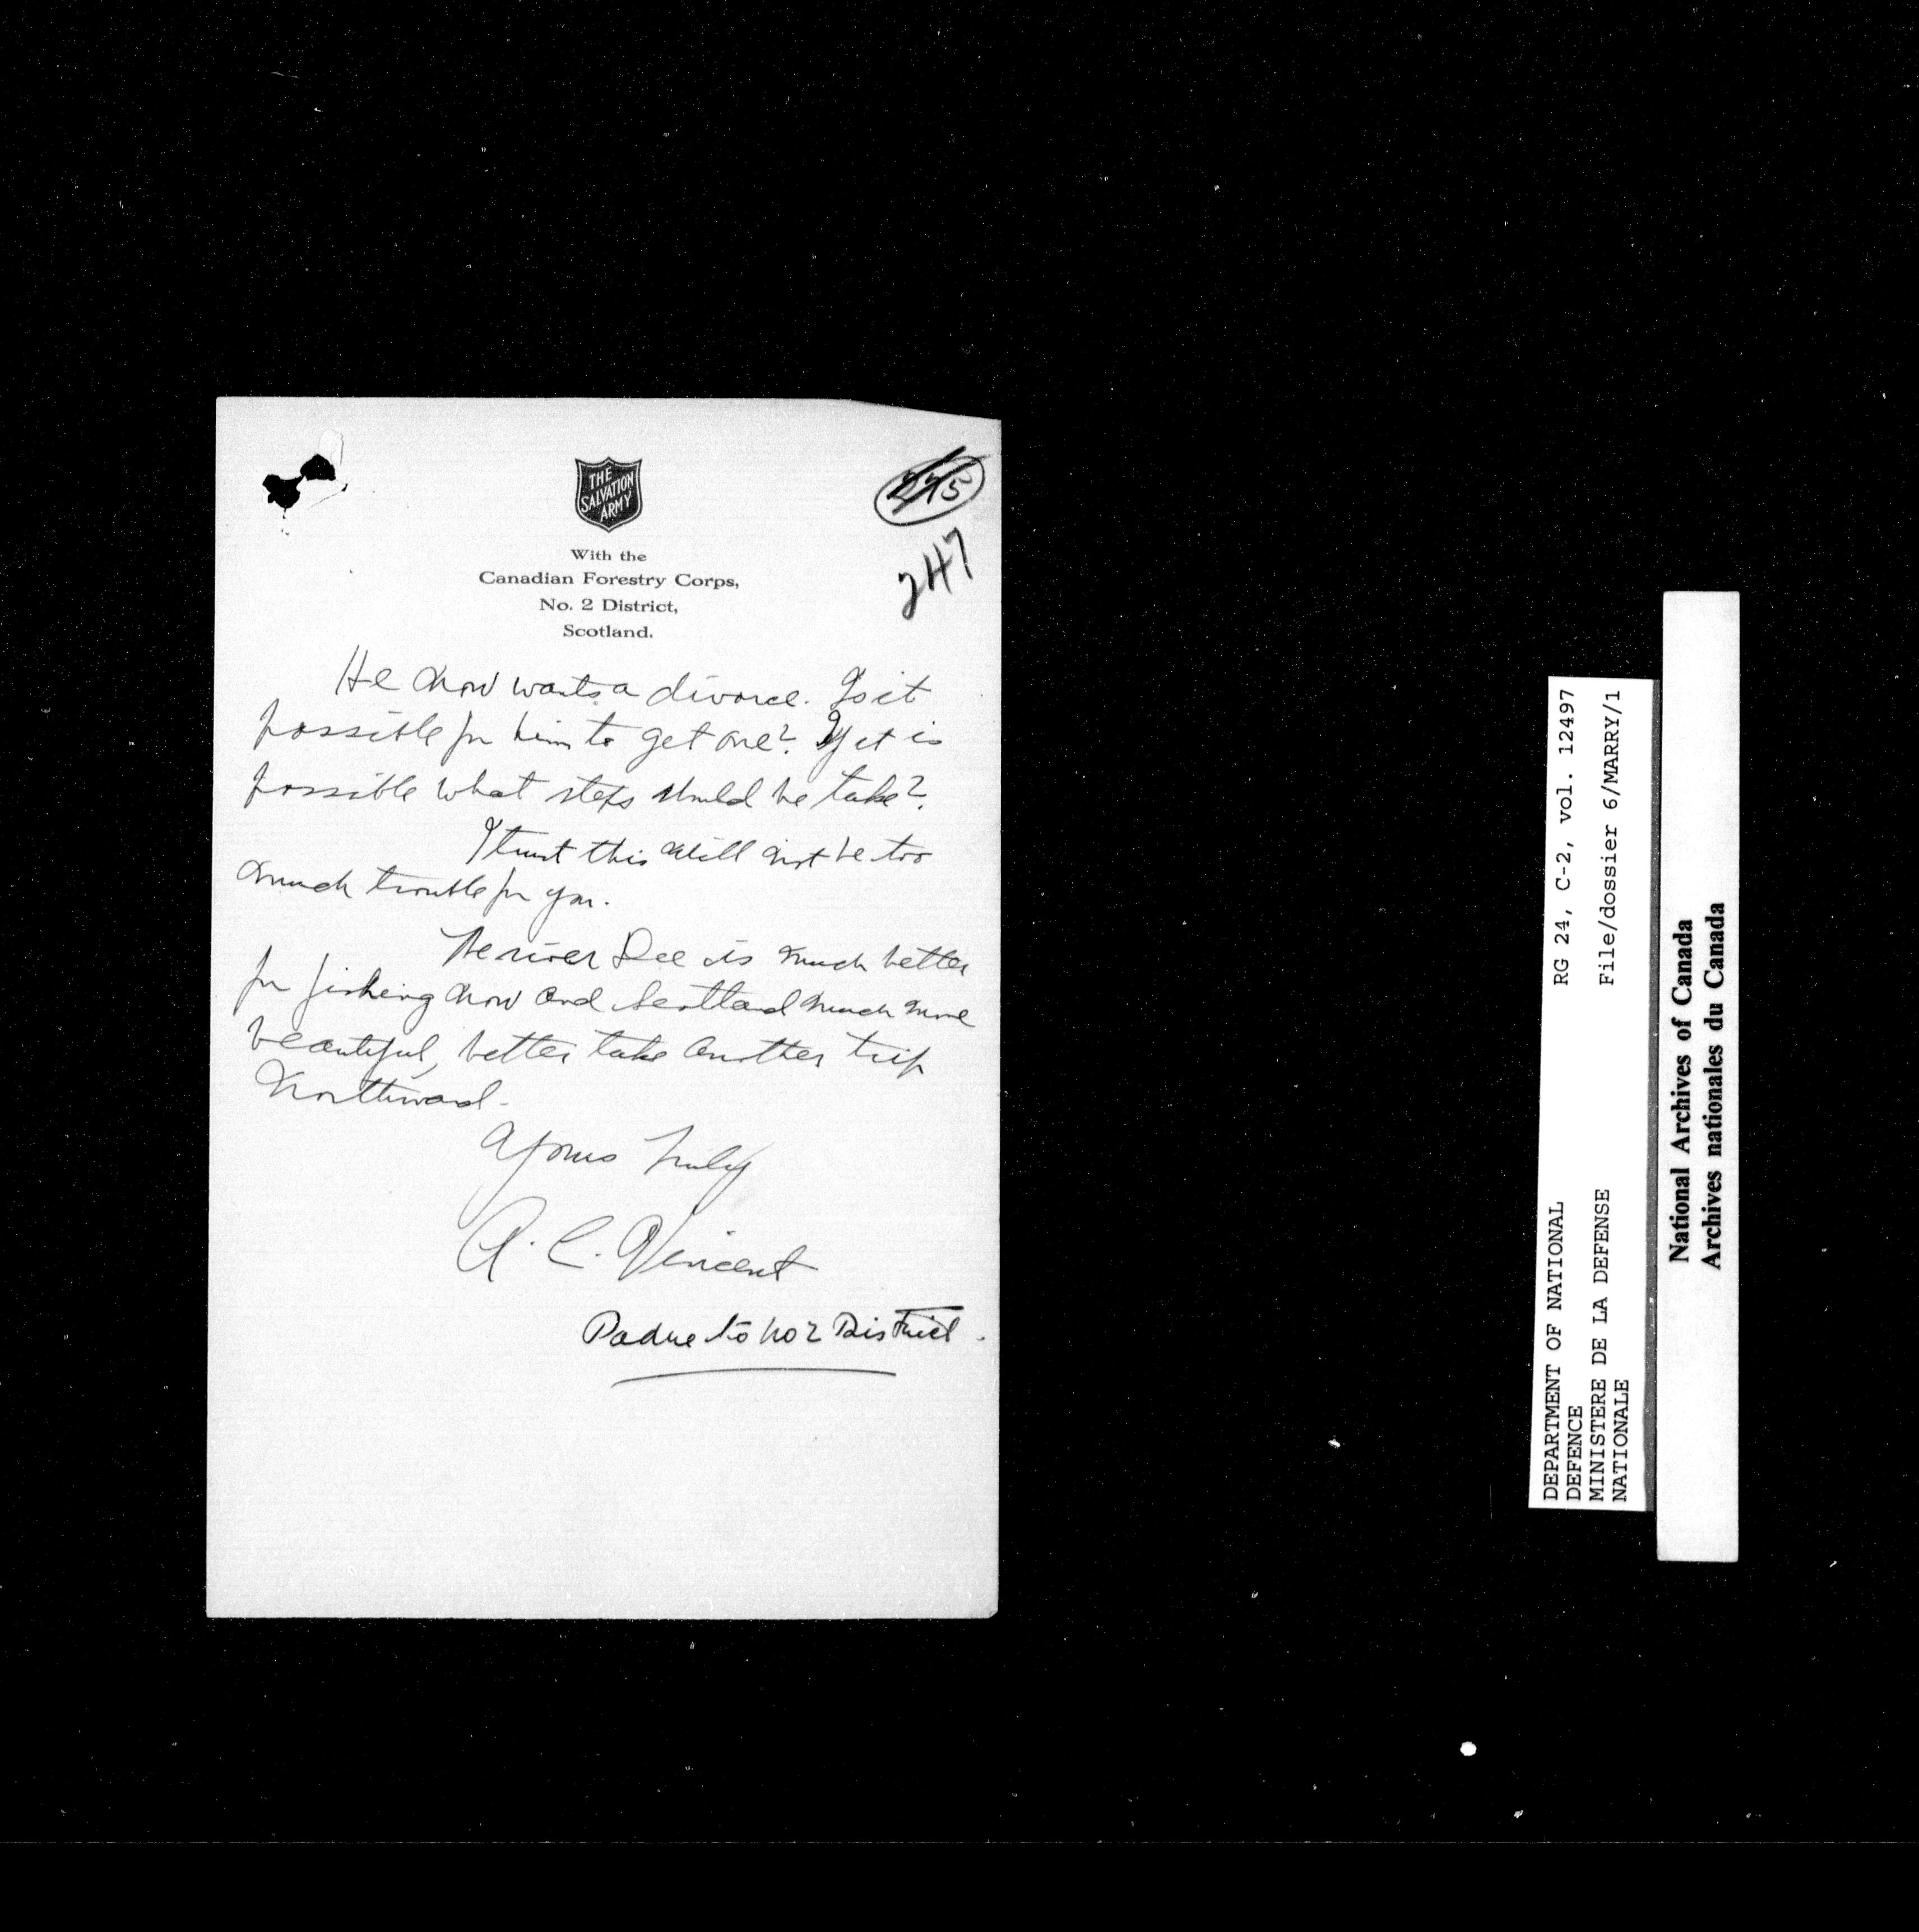 THE
SALVATION
ARMY
245
247
With the
Canadian Forestry Corps,
No. 2 District,
Scotland.
He now wants a divorce. Is it
possible for him to get one? If it is
possible what steps should he take?
I trust this will not be too
much trouble for you.
The river Dee is much better
for fishing now and Scotland much more
beautiful, better take another trip
Northward.
Yours Truly
A. C. Vincent
Padre to No 2 District.
RG 24, C-2, vol. 12497
File/dossier 6/MARRY/1
DEPARTMENT OF NATIONAL
DEFENCE
MINISTERE DE LA DEFENSE
NATIONALE
National Archives of Canada
Archives nationales du Canada